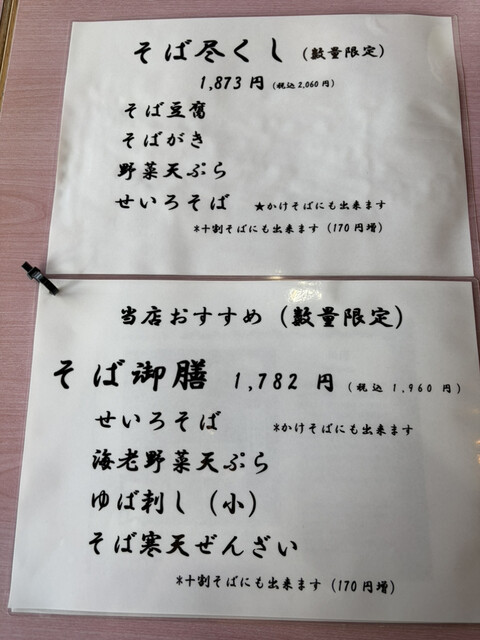 そば尽くし（数量限定）
1,873 円（税込 2,060 円）
そば豆腐
そばがき
野菜天ぷら
せいろそば ★かけそばにも出来ます
*十割そばにも出来ます（170 円増）
当店おすすめ（数量限定）
そば御膳 1,782 円（税込 1,960 円）
せいろそば *かけそばにも出来ます
海老野菜天ぷら
ゆば刺し（小）
そば寒天ぜんざい
*十割そばにも出来ます（170 円増）